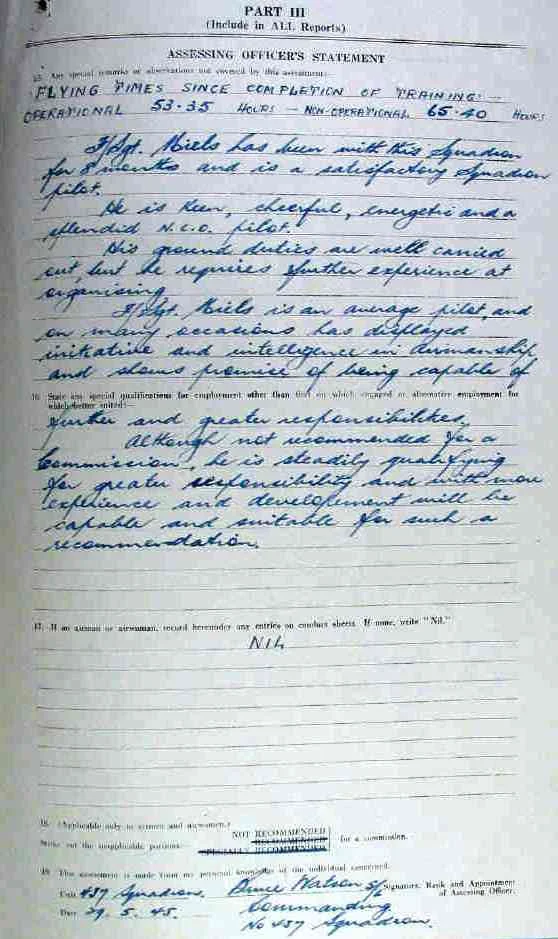 PART III
(Include in ALL Reports)
ASSESSING OFFICER'S STATEMENT
15. Any special remarks or observations not covered by this assessment:—
FLYING TIMES SINCE COMPLETION OF TRAINING:—
OPERATIONAL 53·35 HOURS — NON-OPERATIONAL 65·40 HOURS
F/Sgt. Miels has been with this Squadron
for 8 months and is a satisfactory Squadron
pilot.
He is keen, cheerful, energetic and a
splendid N.C.O. pilot.
His ground duties are well carried
out, but he requires further experience at
organising
F/Sgt. Miels is an average pilot, and
on many occasions has displayed
initiative and intelligence in airmanship
and shows promise of being capable of
16. State any special qualifications for employment other than that on which engaged or alternative employment for
which better suited:—
further and greater responsibilities.
Although not recommended for a
Commission, he is steadily qualifying
for greater responsibility and with more
experience and development will be
capable and suitable for such a
recommendation.
17. If an airman or airwoman, record hereunder any entries on conduct sheets. If none, write "Nil."
NIL
18. (Applicable only to airmen and airwomen.)
NOT RECOMMENDED
RECOMMENDED
Strike out the inapplicable portions. for a commission.
SPECIALLY RECOMMENDED
19. This assessment is made from my personal knowledge of the individual concerned.
Unit 457 Squadron. Bruce Watson S/L Signature, Rank and Appointment
of Assessing Officer.
Date 29. 5. 45. Commanding
No 457 Squadron.